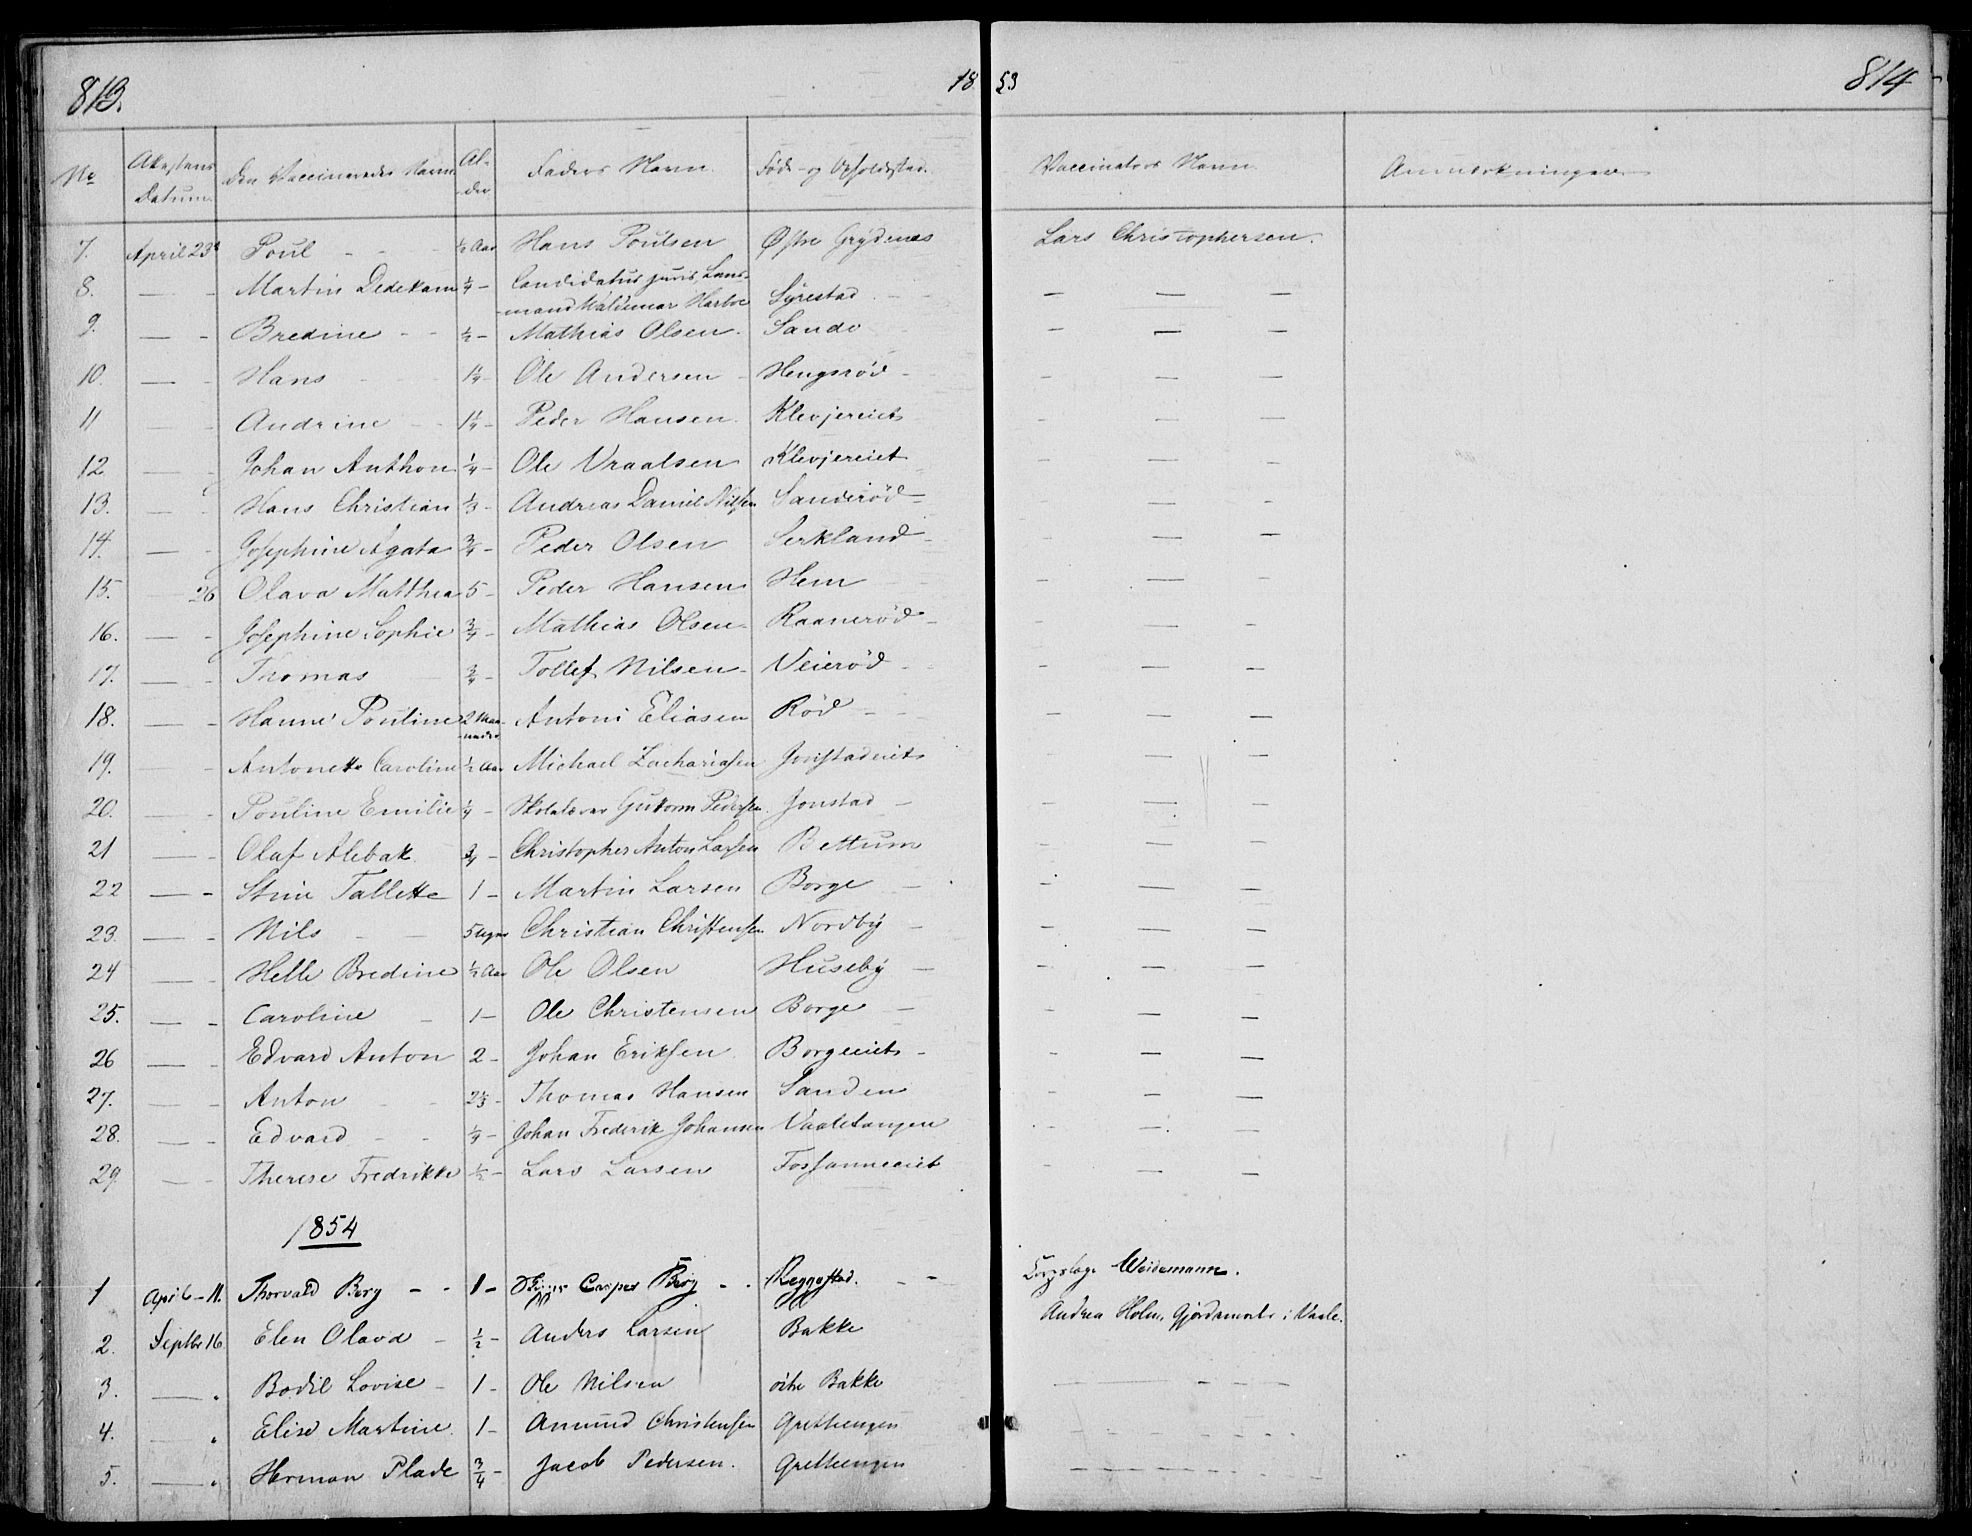 813. 18 53 814
No Attestens Datum. Den Vaccineredes Navn. Al- der Faders Navn. Føde- og Opholdsted. Vaccinators Navn. Anmærkninger
7. April 23d Poul - - ½ Aar Hans Poulsen Østre Grydenæs Lars Christophersen.
8. — - Martin Dedekam ¼ - Candidatus juris, Lens-
mand Valdemar Harboe Syrestad - - — — —
9. — - Bredine - - ½ - Mathias Olsen. Sande - — —
10. — - Hans - - - 1¼ - Ole Andersen - Hengsrød - - — —
11 — - Andrine - - 1¼ - Peder Hansen. Klevjereiet - — —
12 — - Johan Anthon ¼ - Ole Vraalsen Klevjereiet - — —
13. — - Hans Christian ⅓ - Andreas Daniel Nilsen Sanderød - - — —
14. — - Josephine Agata ¾ - Peder Olsen Serkland - - — —
15. 26 Olava Matthea 5 - Peder Hansen Hem - — —
16. — - Josephine Sophie ¾ - Mathias Olsen - Raanerød - - — —
17. — - Thomas ¾ - Tollef Nilsen - Veierød - - — —
18. — - Hanne Pouline 2 Maa-
neder Antoni Eliasen Rød - - - — —
19. — - Antonette Caroline ½ Aar Michael Zachariasen Jonstadeiet - — —
20. — - Pouline Emilie ¼ - Skolelærer Gutorm Pedersen Jonstad - - — —
21 — - Olaf Alebak ¾ - Christopher Anton Larsen Bettum - — —
22 — - Stine Tallette 1 - Martin Larsen Borge - - — —
23. — - Nils - - 5 Uger Christian Christensen Nordby - - — —
24 — - Helle Bredine ½ Aar Ole Olsen Huseby - - — —
25. — - Caroline - 1 - Ole Christensen Borge - - — —
26 — - Edvard Anton 2 - Johan Eriksen Borgeeiet - - — —
27. — - Anton - - 2⅔ - Thomas Hansen Sanden - — —
28. — - Edvard - - ¼ - Johan Frederik Johansen Vaaletangen - — —
29. — - Therese Fredrikke ½ - Lars Larsen Fossanneeiet - — —
1854
1 April - 11. Thorvald Berg - - 1 - Casper Berg - . Reggestad. - - Weidemann.
2. Septbr 16 Elen Olava - ½ - Anders Larsen Bakke Andrea Holm, Gjordemoder i Vaale.
3. — „ Bodil Lovise - 1 - Ole Nilsen Bakke — - — —
4. — „ Elise Martine. 1 - Amund Christensen Grettiengen - - - - - -
5. — „ Herman Plade ¾ - Jacob Pedersen. Grettiengen - - - - - -